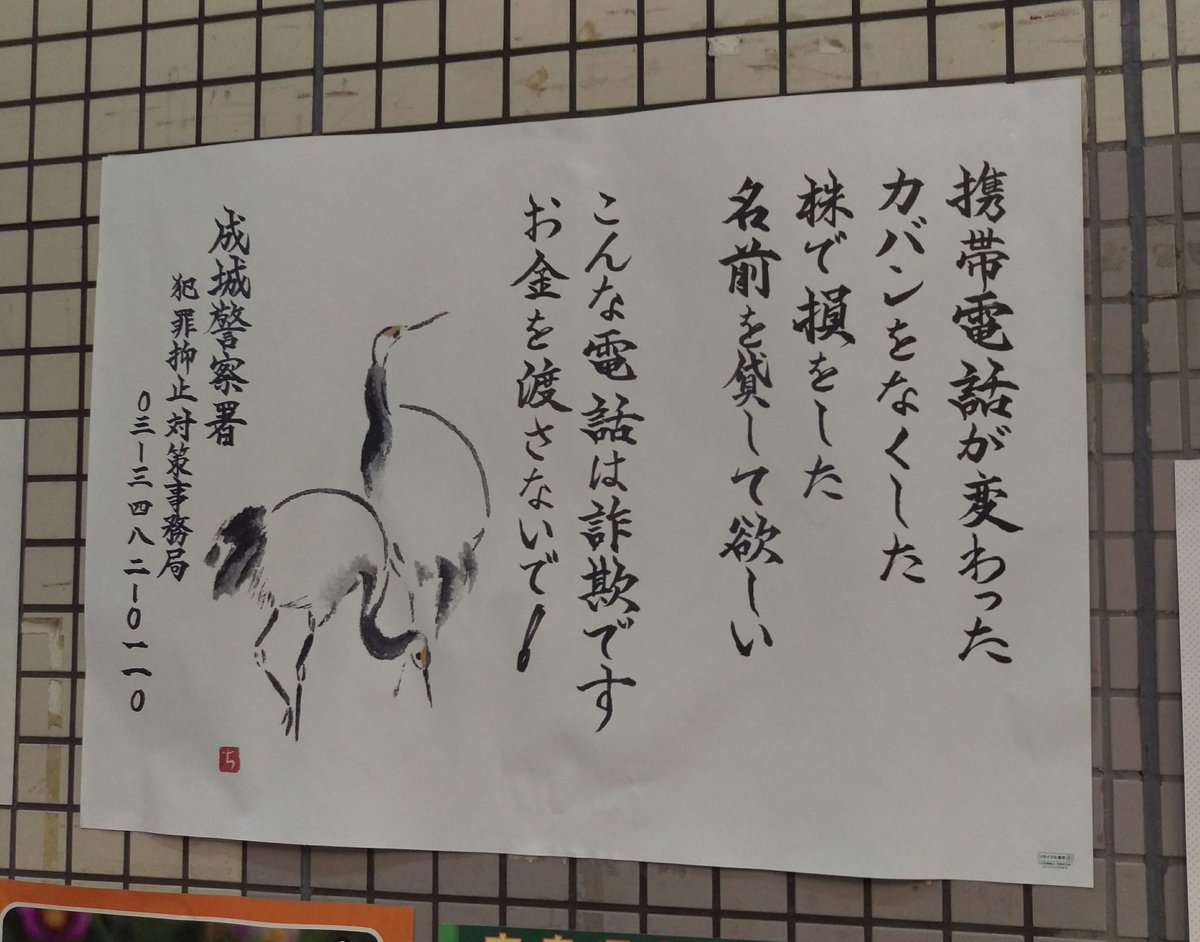 携帯電話が変わった
カバンをなくした
株で損をした
名前を貸して欲しい
こんな電話は詐欺です
お金を渡さないで!
成城警察署
犯罪抑止対策事務局
〇三-三四八二-〇一一〇
ち